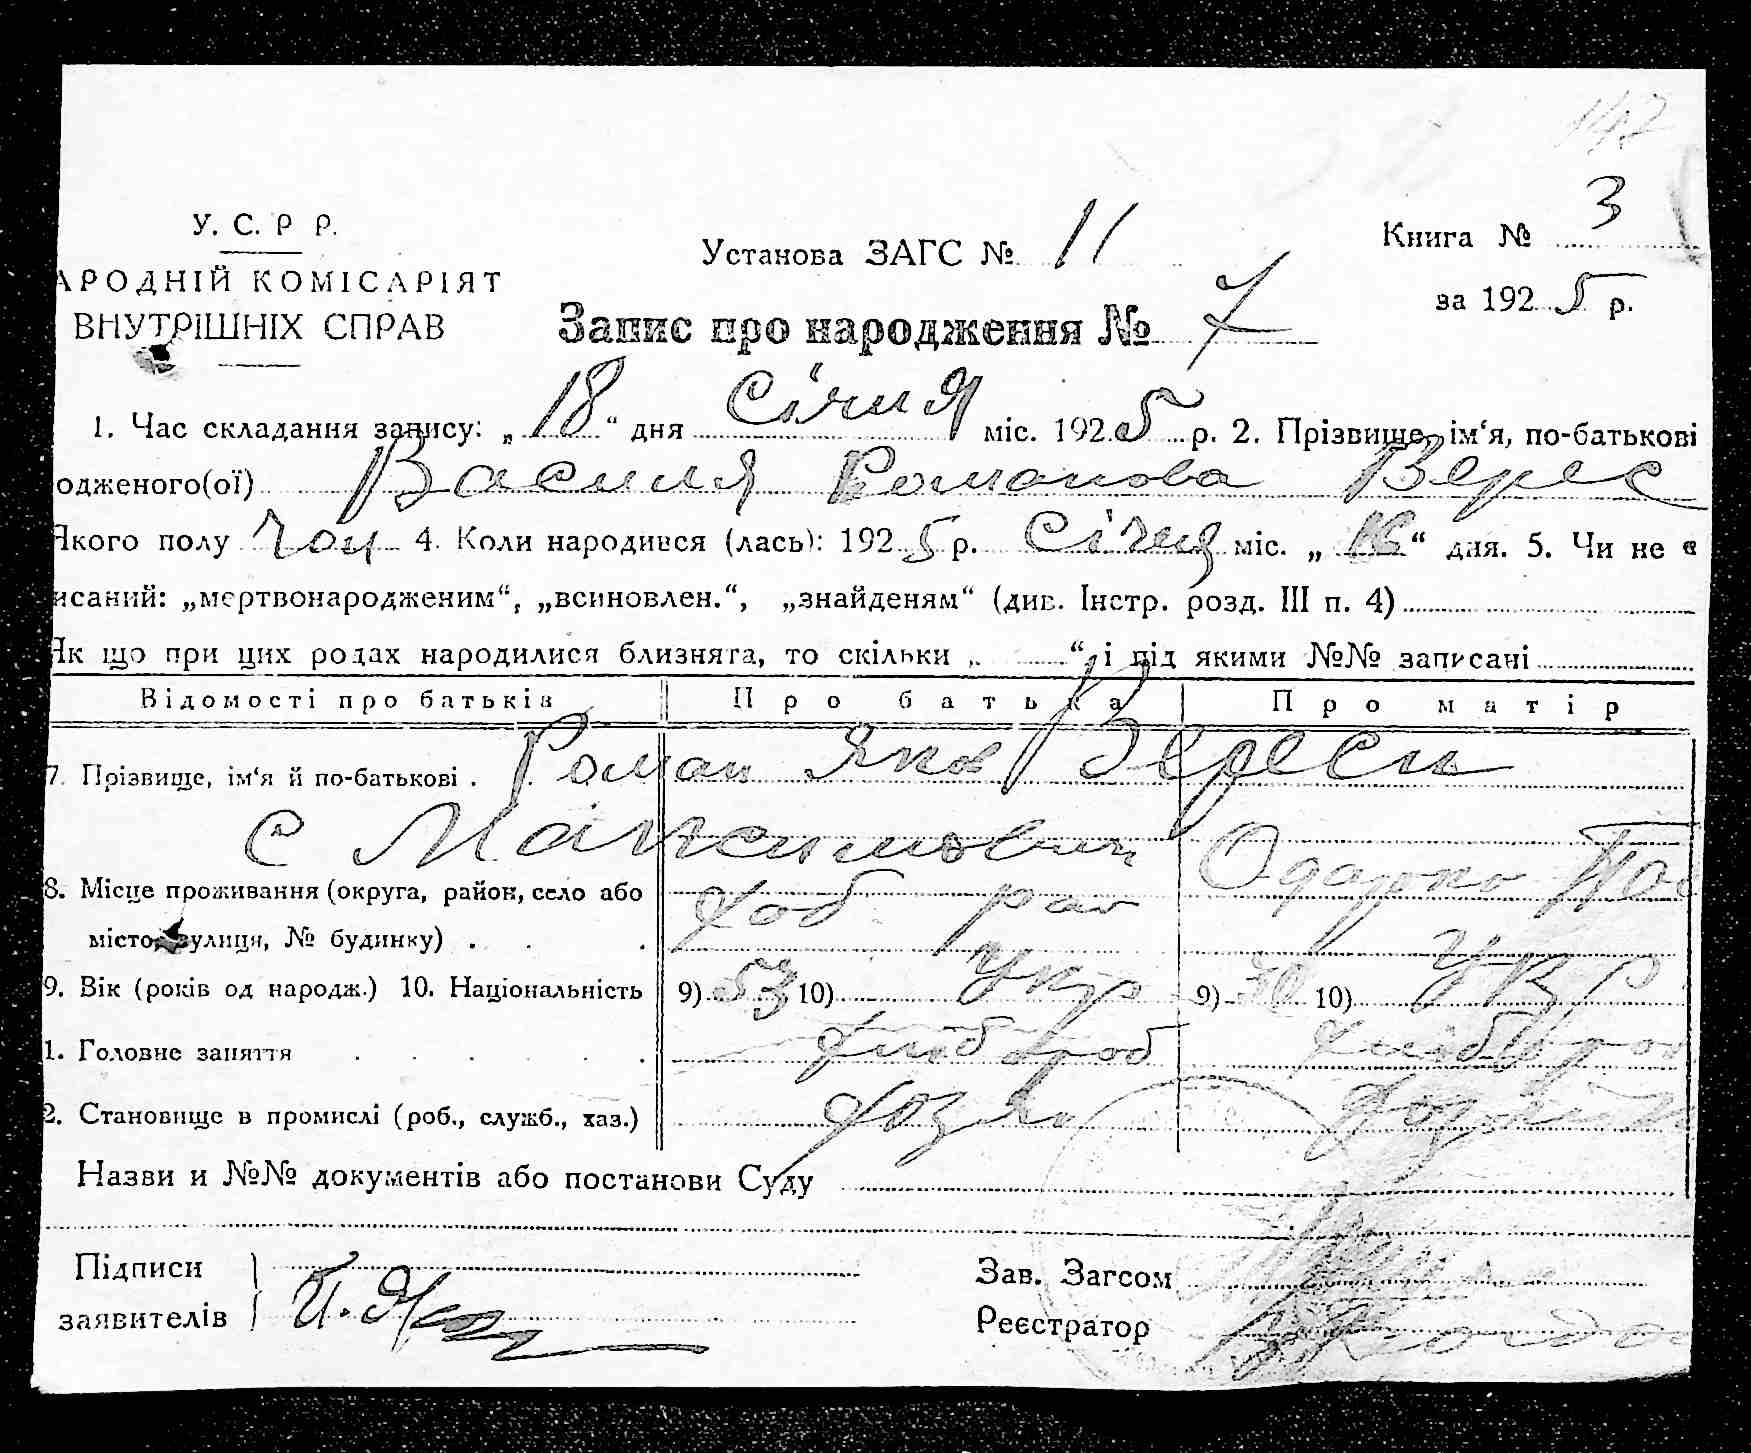 142
У. С. Р Р.
АРОДНІЙ КОМІСАРІЯТ
ВНУТРІШНІХ СПРАВ
Установа ЗАГС № 11
Книга № 3
за 1925 р.
Запис про народження № 7
1. Час складання запису: „18“ дня Січня міс. 1925 р. 2. Прізвище, ім‘я, по-батькові
одженого(ої) Василя Романова Верес
Якого полу Чол 4. Коли народився (лась): 1925 р. Січня міс. „16“ дня. 5. Чи не є
исаний: „мертвонародженим“, „всиновлен.“, „знайденям“ (див. Інстр. розд. III п. 4)
Як що при цих родах народилися близнята, то скільки „ “ і під якими №№ записані
Відомості про батьків Про батька Про матір
7. Прізвище, ім‘я й по-батькові . Роман Яков Верес
С Максимович Одарка
8. Місце проживання (округа, район, село або
місто, вулиця, № будинку) . . . рай
9. Вік (років од народж.) 10. Національність 9) 53 10) Укр 9) 10) Укр
1. Головне заняття . . . . . . Хлібороб Хлібороб
2. Становище в промислі (роб., служб., хаз.)
Назви и №№ документів або постанови Суду
Підписи
заявителів
Зав. Загсом
Реєстратор